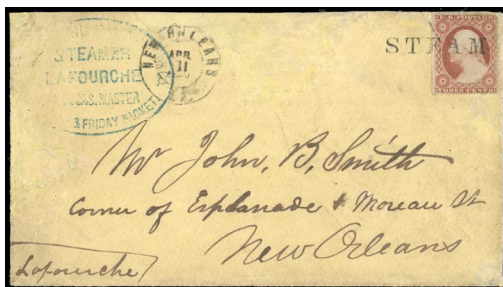 STEAMER
LAFOURCHE
MASTER
& FRIDAY PACKET
NEW ORLEANS
APR
11
STEAM
U.S. POSTAGE
THREE CENTS
Mr John, B, Smith
Corner of Esplanade & Moreau St
New Orleans
Lafourche